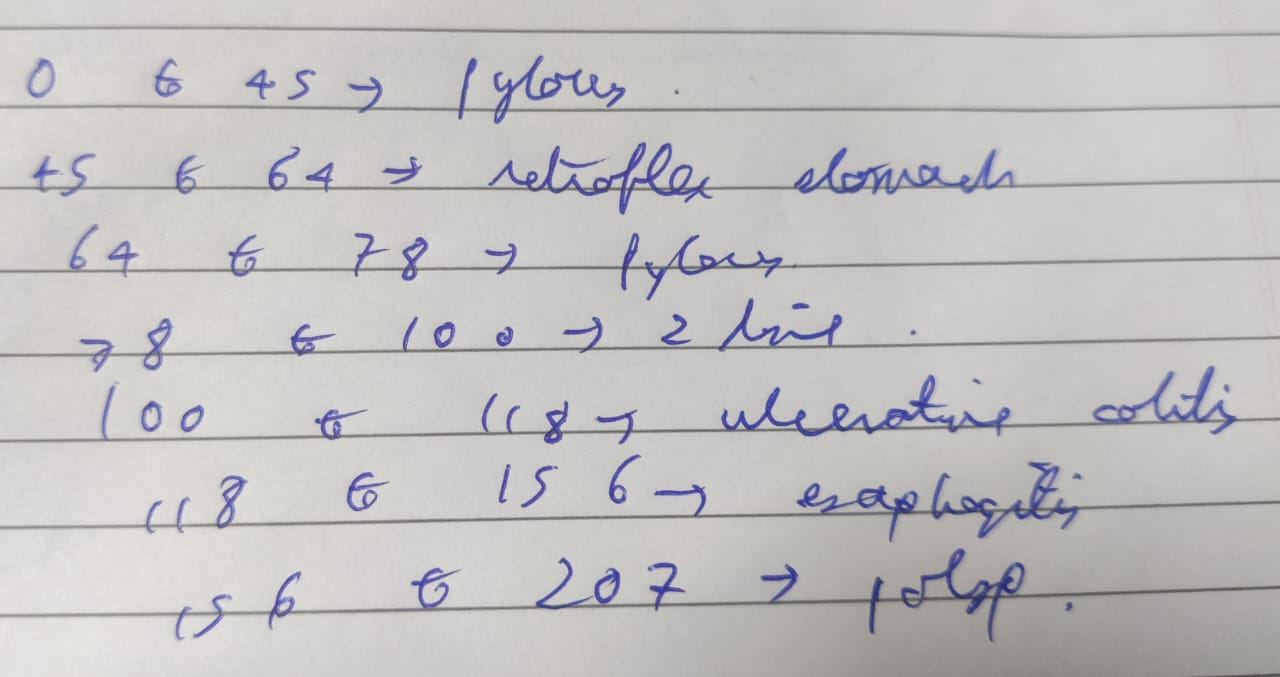 0 to 45 → pylorus.
45 to 64 → retroflex stomach
64 to 78 → pylorus.
78 to 100 → z line.
100 to 118 → ulcerative colitis
118 to 156 → esophagitis
156 to 207 → polyp.